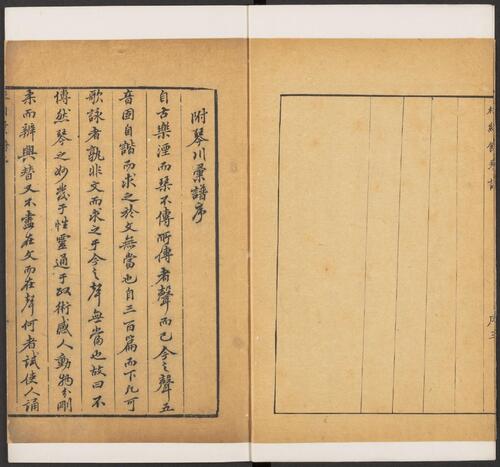 附琴川彙譜序
自古樂湮而琴不傳所傳者聲而已今之聲五
音固自諧而求之於文無當也自三百篇而下凡可
歌詠者孰非文而求之于今之聲無當也故曰不
傳然琴之妙發于性靈通于政術感人動物分剛
柔而辨興替又不盡在文而在聲何者試使人誦